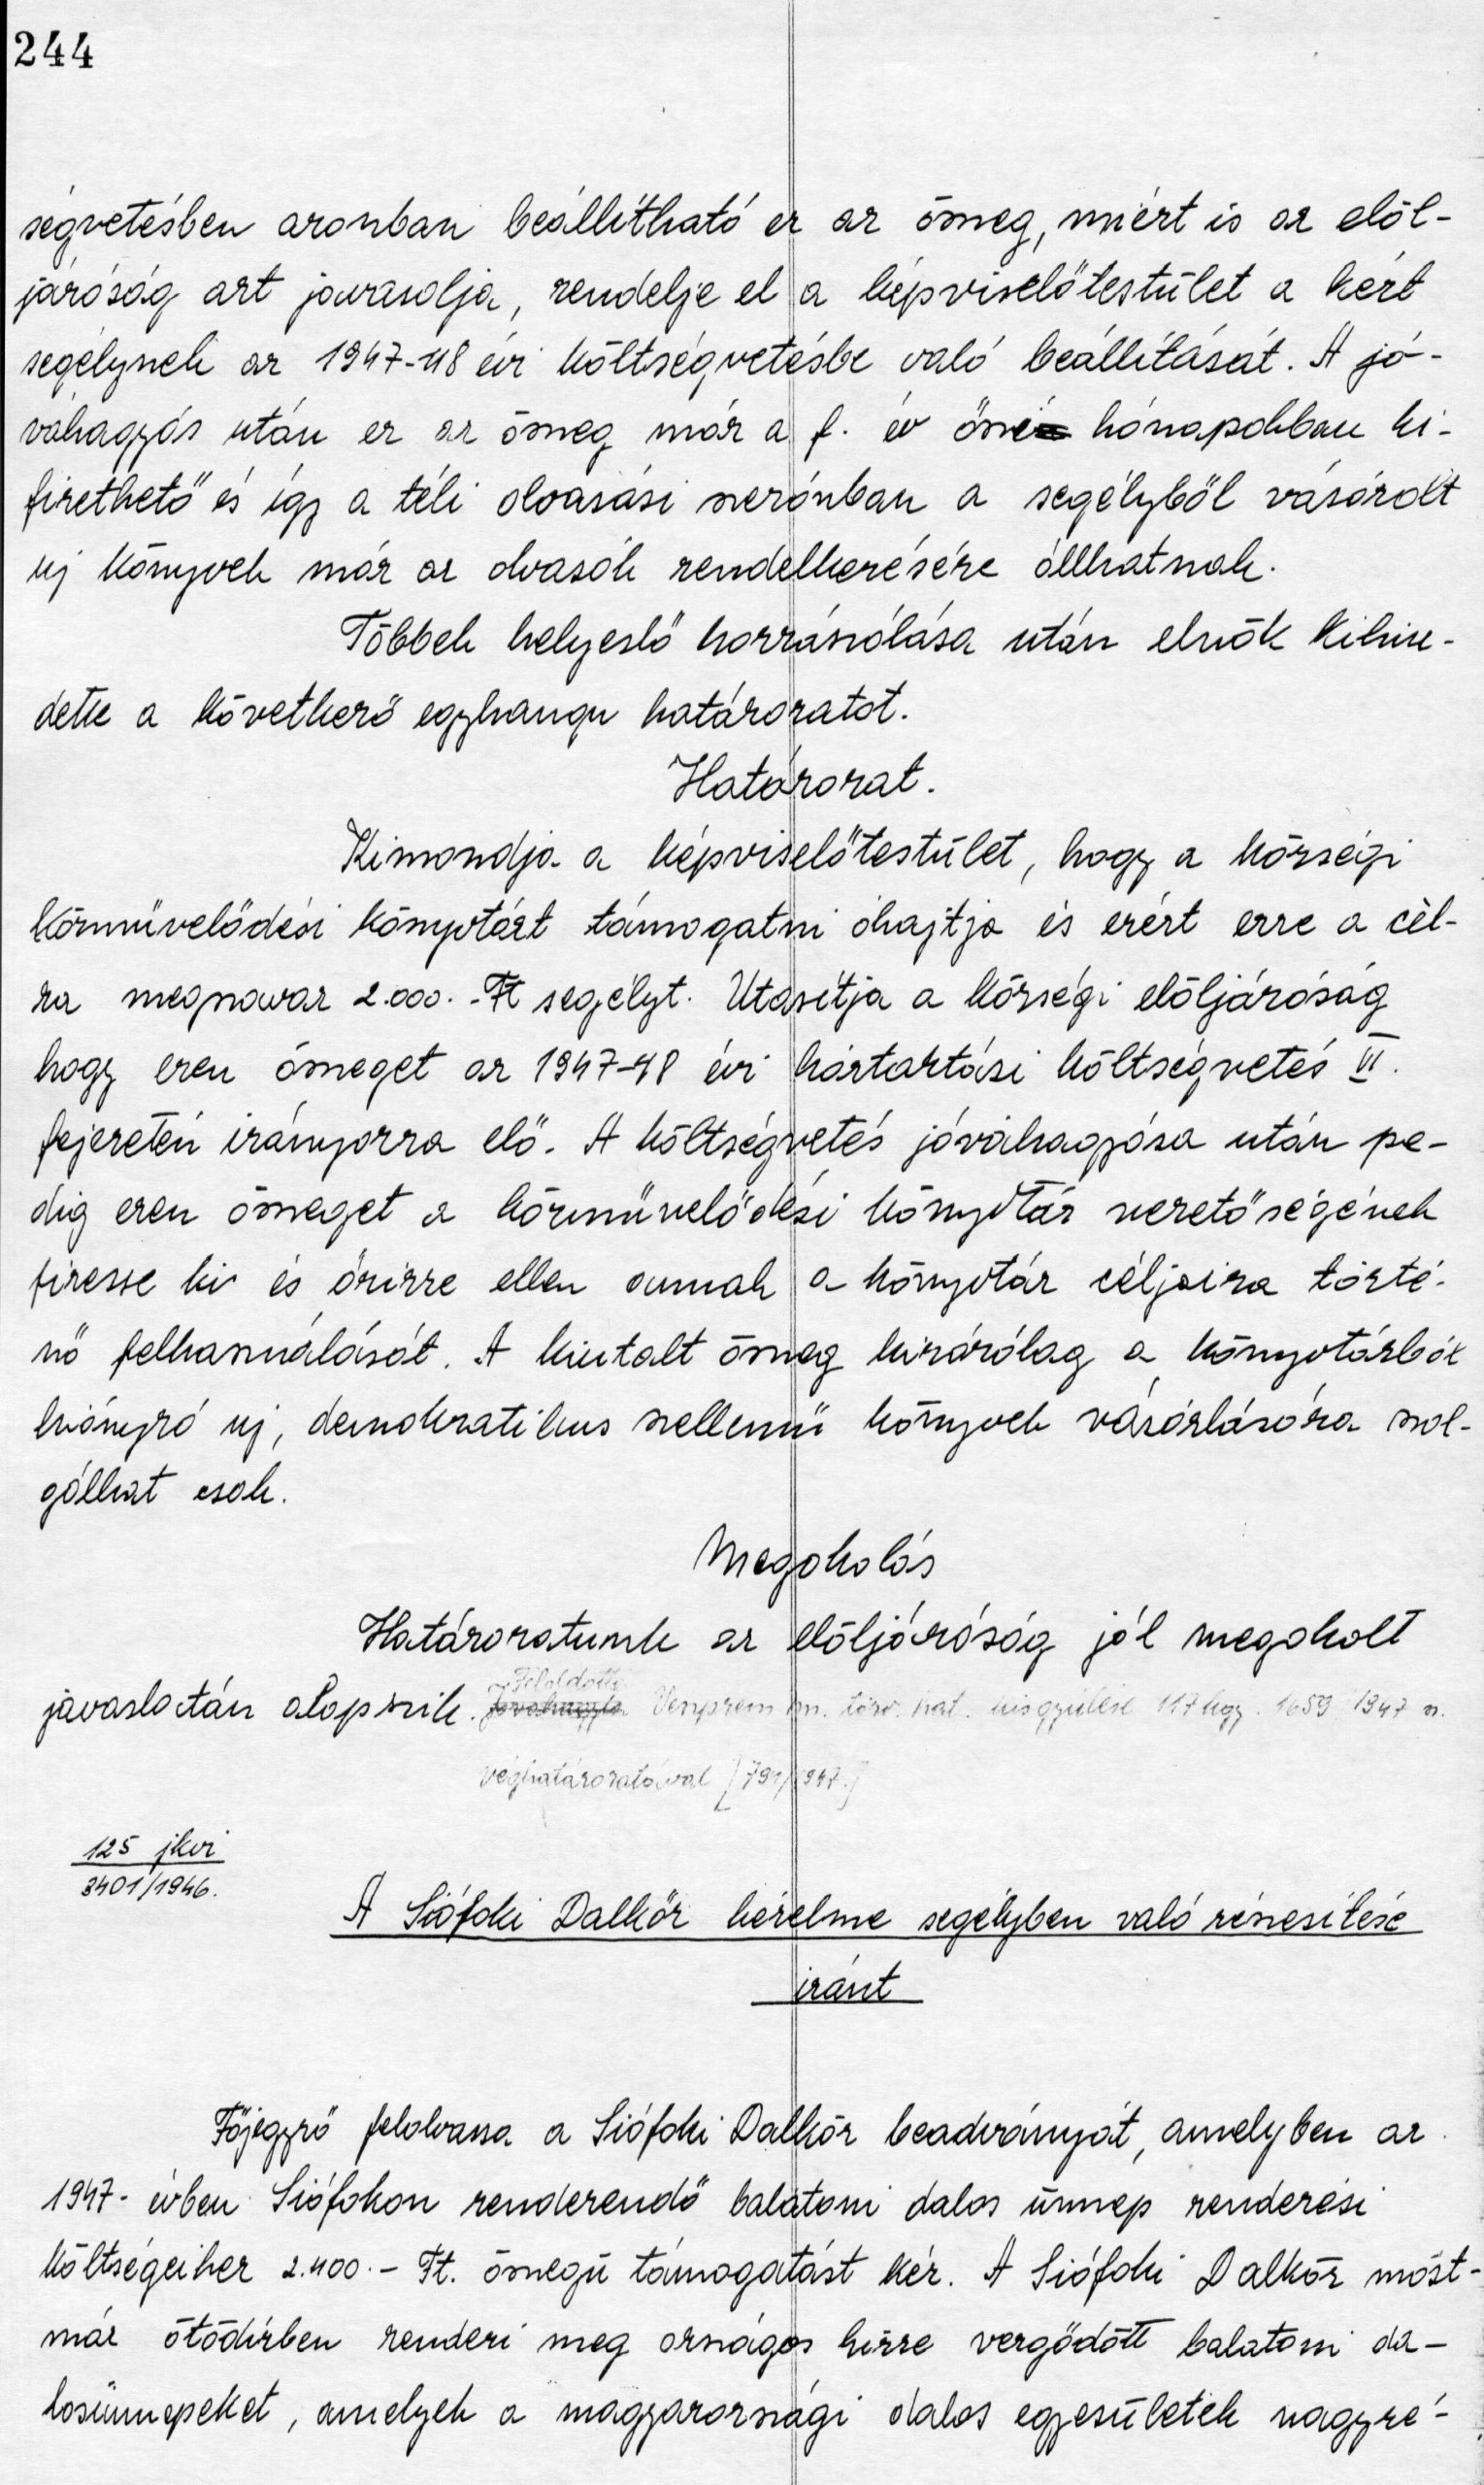 244
ségvetésben azonban beállítható ez az összeg, miért is az elöl-
járóság azt javasolja, rendelje el a képviselőtestület a kért
segélynek az 1947-48 évi költségvetésbe való beállítását. A jó-
váhagyás után ez az összeg már a f. év őszi hónapokban ki-
fizethető és így a téli olvasási szezónban a segélyből vásárolt
uj könyvek már az olvasók rendelkezésére állhatnak.
Többek helyeslő hozzászólása után elnök kihir-
dette a következő egyhangu határozatot.
Határozat.
Kimondja a képviselőtestület, hogy a községi
közművelődési könyvtárt támogatni óhajtja és ezért erre a cél-
ra megszavaz 2.000.-Ft segélyt. Utasítja a községi elöljáróság
hogy ezen összeget az 1947-48 évi háztartási költségvetés VI.
fejezetén irányozza elő. A költségvetés jóváhagyása után pe-
dig ezen összeget a közművelődési könyvtár vezetőségének
fizesse ki és őrizze ellen annak a könyvtár céljaira törté-
nő felhasználását. A kiutalt összeg kizárólag a könyvtárból
hiányzó uj, demokratikus szellemü könyvek vásárlására szol-
gálhat csak.
Megokolás
Határozatunk az elöljáróság jól megokolt
javaslatán alapszik. Feloldotta jóváhagyta Veszprém vm. törv. hat. kisgyülése 117 kgy. 1659/1947 sz.
véghatározatával [791/1947.]
125 jkvi
3401/1946.
A Siófoki Dalkör kérelme segélyben való részesítése
iránt
Főjegyző felolvassa a Siófoki Dalkör beadványát, amelyben az
1947- évben Siófokon rendezendő balatoni dalos ünnep rendezési
költségeihez 2.400.- Ft. összegü támogatást kér. A Siófoki Dalkör most-
már ötödízben rendezi meg országos hírre vergődött balatoni da-
losünnepeket, amelyek a magyarországi dalos egyesületek nagyré-